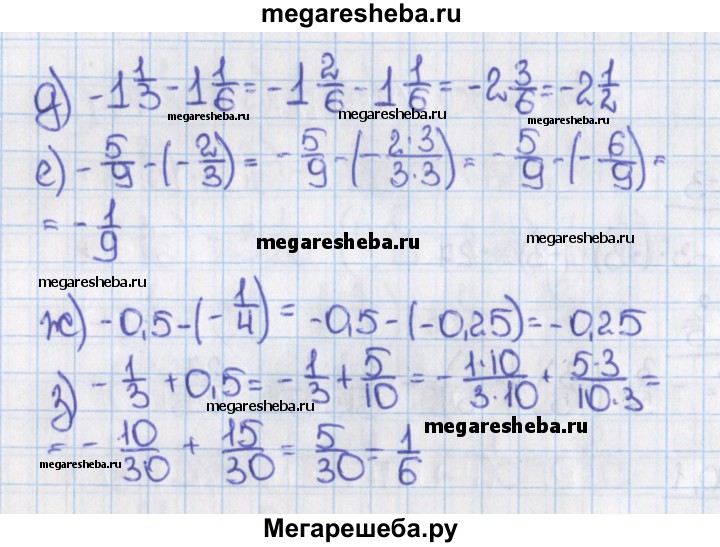 megaresheba.ru
д) -1 1/3 - 1 1/6 = -1 2/6 - 1 1/6 = -2 3/6 = -2 1/2
megaresheba.ru megaresheba.ru megaresheba.ru
е) - 5/9 - (- 2/3) = - 5/9 - (- 2·3/3·3) = - 5/9 - (- 6/9) =
= - 1/9
megaresheba.ru megaresheba.ru
megaresheba.ru
ж) -0,5 - (- 1/4) = -0,5 - (-0,25) = -0,25
з) - 1/3 + 0,5 = - 1/3 + 5/10 = - 1·10/3·10 + 5·3/10·3 =
megaresheba.ru megaresheba.ru
= - 10/30 + 15/30 = 5/30 = 1/6
megaresheba.ru
Мегарешеба.ру